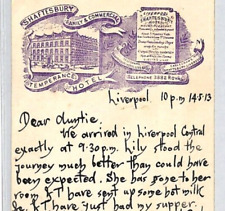 SHAFTESBURY
FAMILY & COMMERCIAL
TEMPERANCE HOTEL
LIVERPOOL
TELEPHONE 3882 ROYAL
Liverpool 10 p.m 14.5.13
Dear Auntie.
We arrived in Liverpool Central
exactly at 9.30p.m. Lily stood the
journey much better than could have
been expected. She has gone to her
room & I have sent up some hot milk
& I have just had my supper.